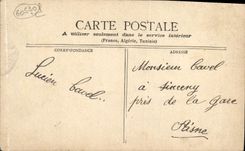 CARTE POSTALE
A utiliser seulement dans le service intérieur
(France, Algérie, Tunisie)
CORRESPONDANCE
ADRESSE
Lucien
Cavel
Monsieur Cavel
à Sinceny
près de la Gare
Aisne